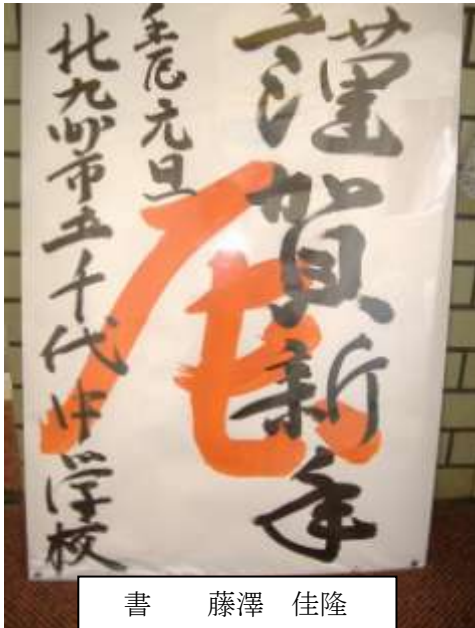 謹賀新年
辰
壬辰元旦
北九州市立千代中学校
書　藤澤　佳隆